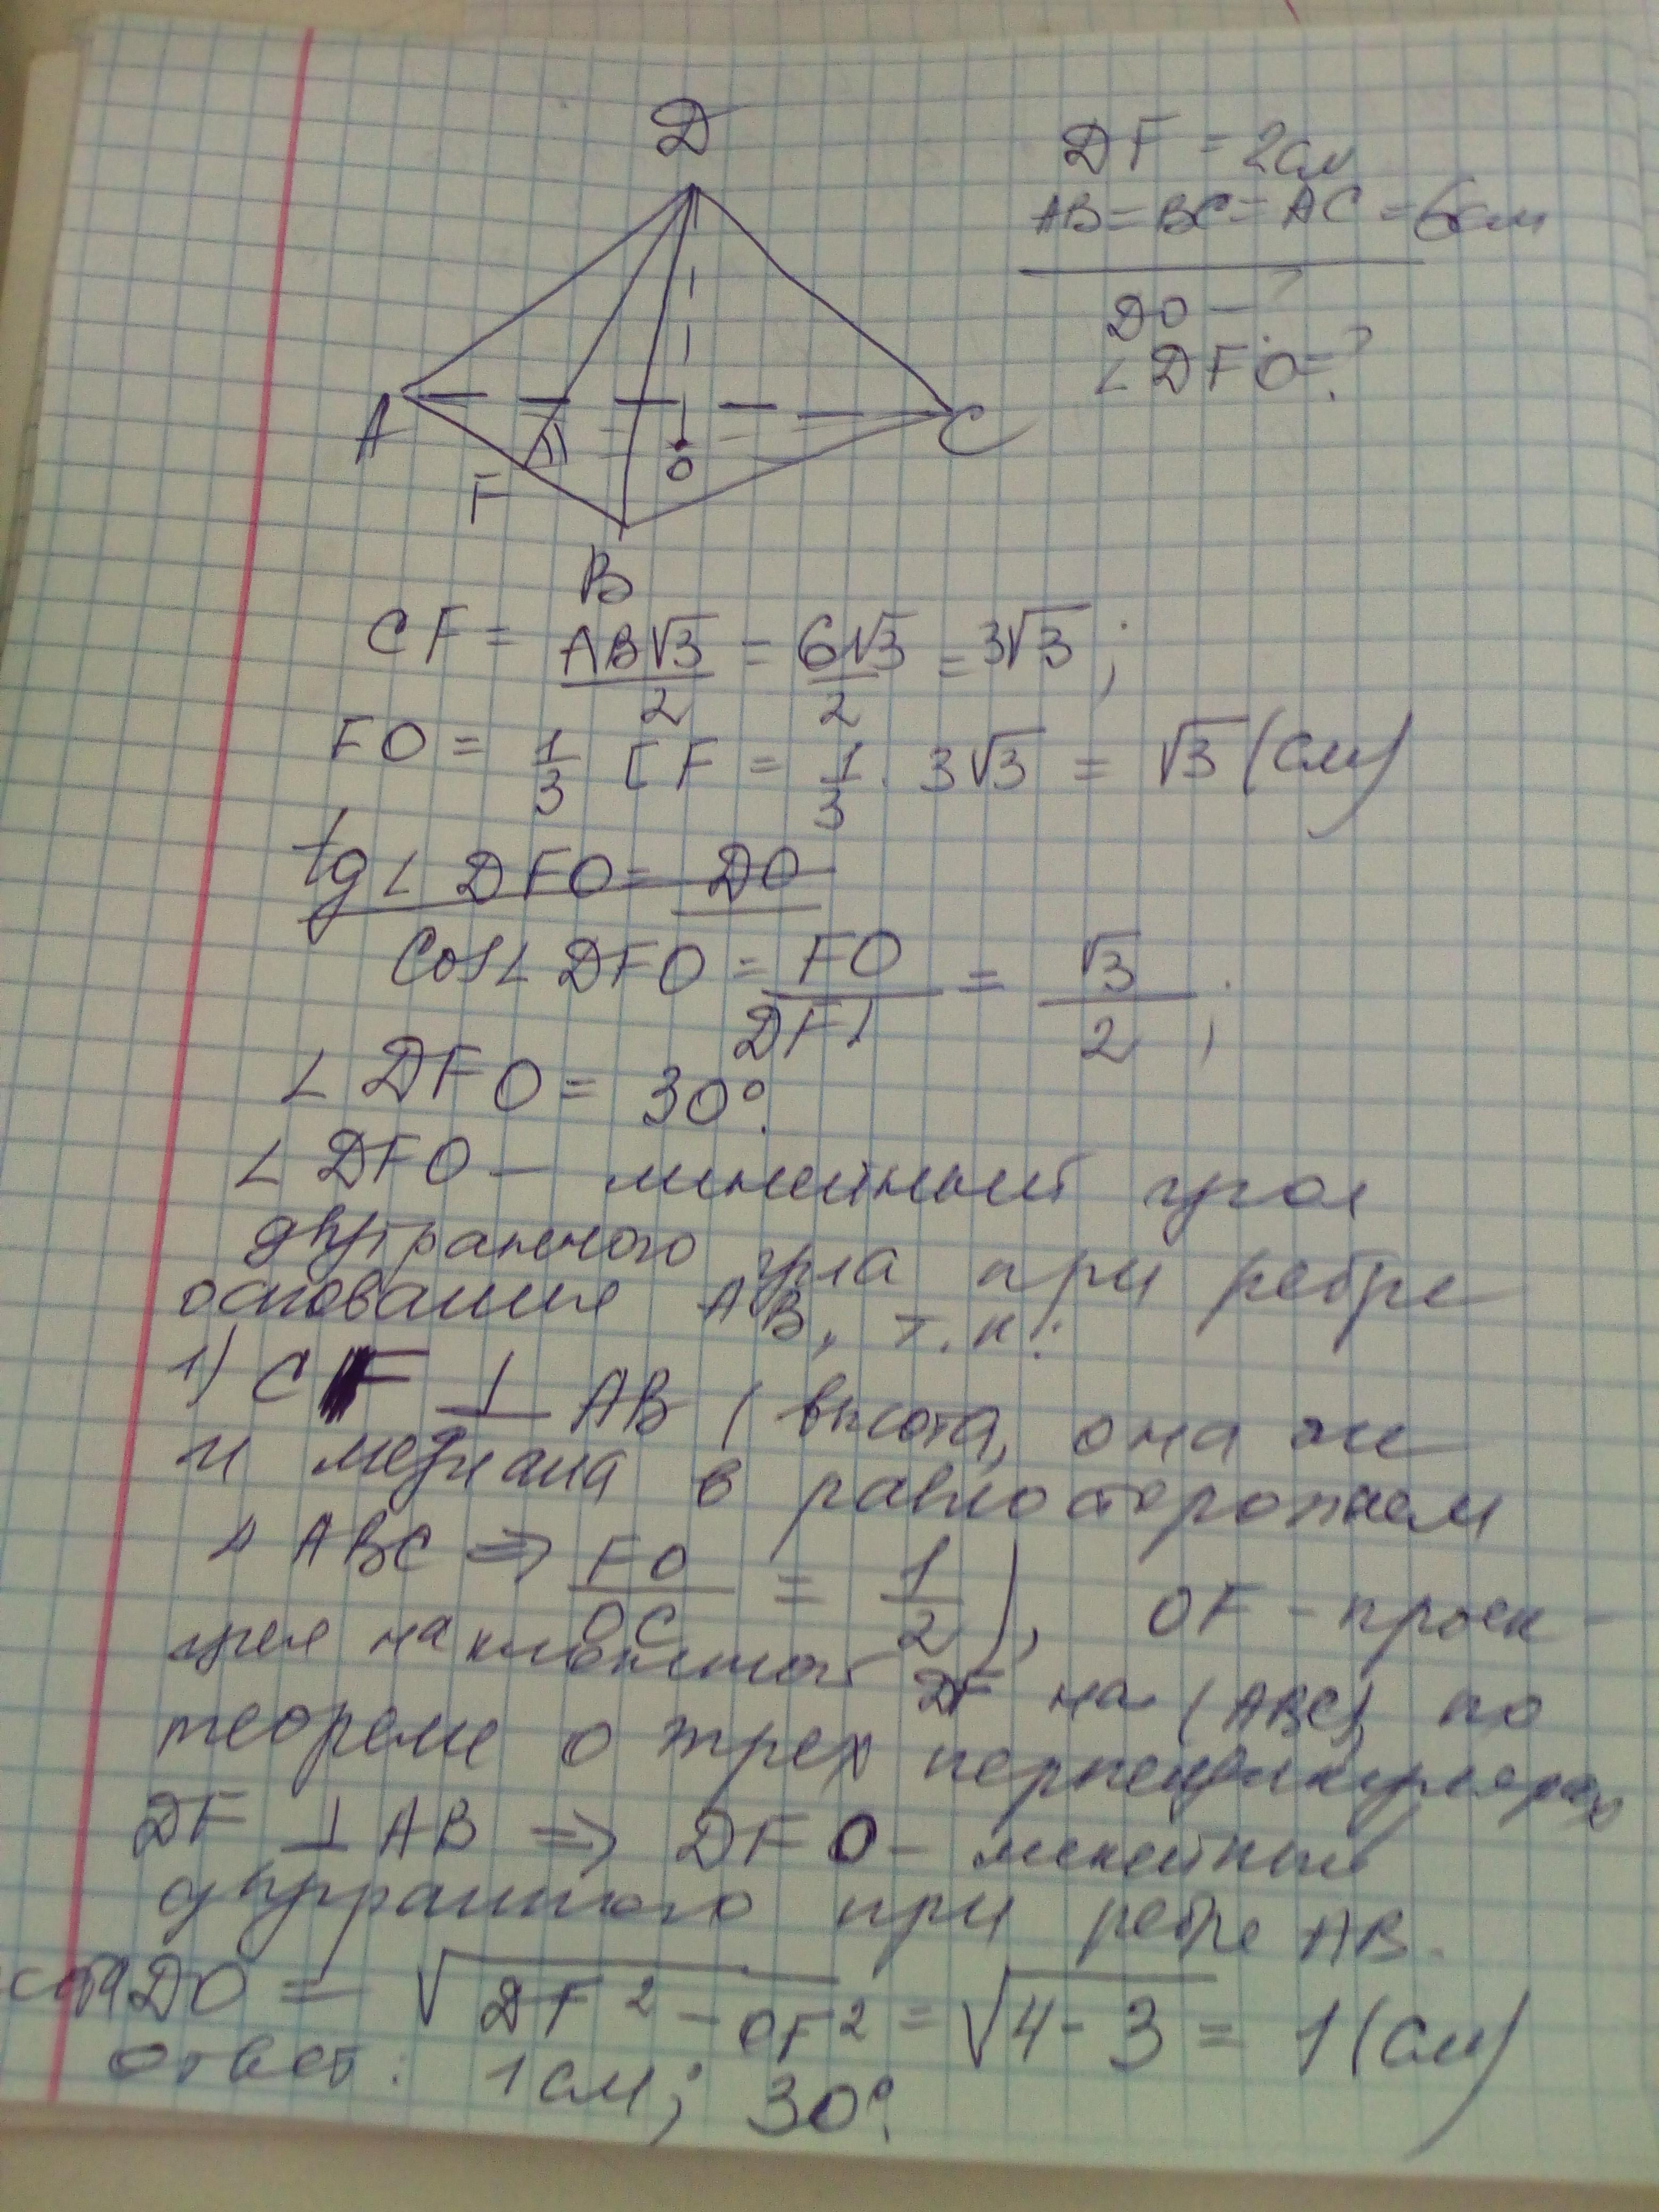 D
DF = 2см
AB = BC = AC = 6см
DO - ?
∠DFO = ?
A
C
F
O
B
CF = AB√3/2 = 6√3/2 = 3√3;
FO = 1/3 CF = 1/3 · 3√3 = √3 (см)
tg∠DFO = DO
Cos∠DFO = FO/DF = √3/2;
∠DFO = 30°.
∠DFO — линейный угол
двугранного угла при ребре
основания AB, т.к.:
1) CF ⊥ AB (высота, она же
и медиана в равностороннем
Δ ABC ⇒ FO/OC = 1/2), OF - проек-
ция наклонной DF на (ABC), по
теореме о трех перпендикулярах
DF ⊥ AB ⇒ DFO - линейный
двугранного при ребре AB.
DO = √DF² - OF² = √4 - 3 = 1 (см)
Ответ: 1 см; 30°.